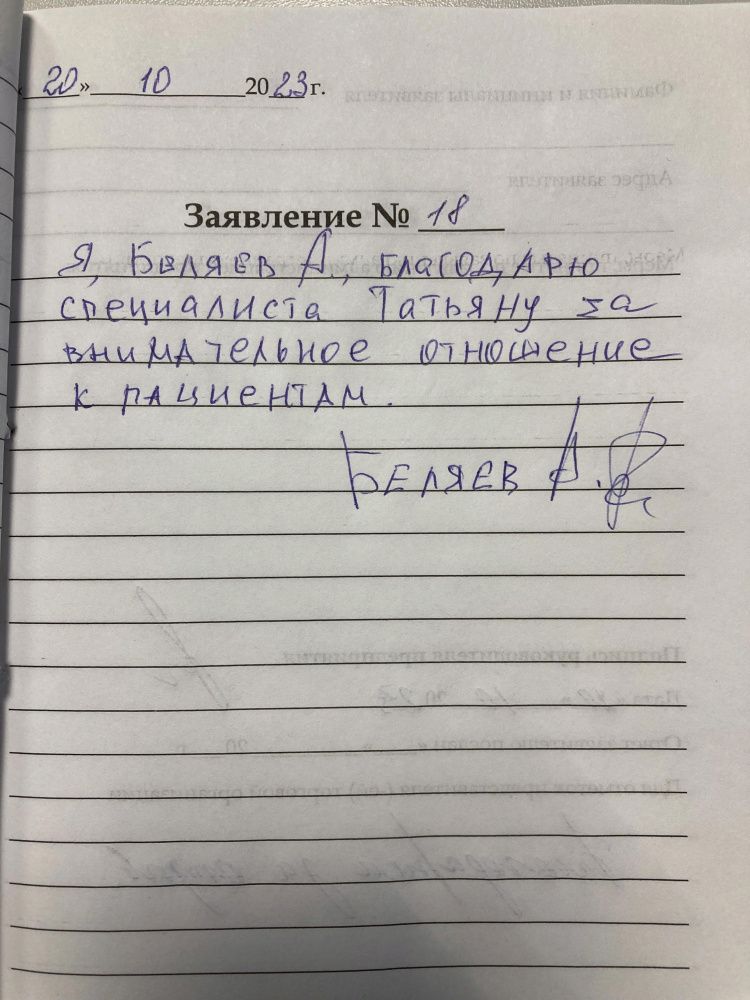 «20» 10 2023 г.
Заявление № 18
Я, Беляев А., благодарю
специалиста Татьяну за
внимательное отношение
к пациентам.
Беляев А.